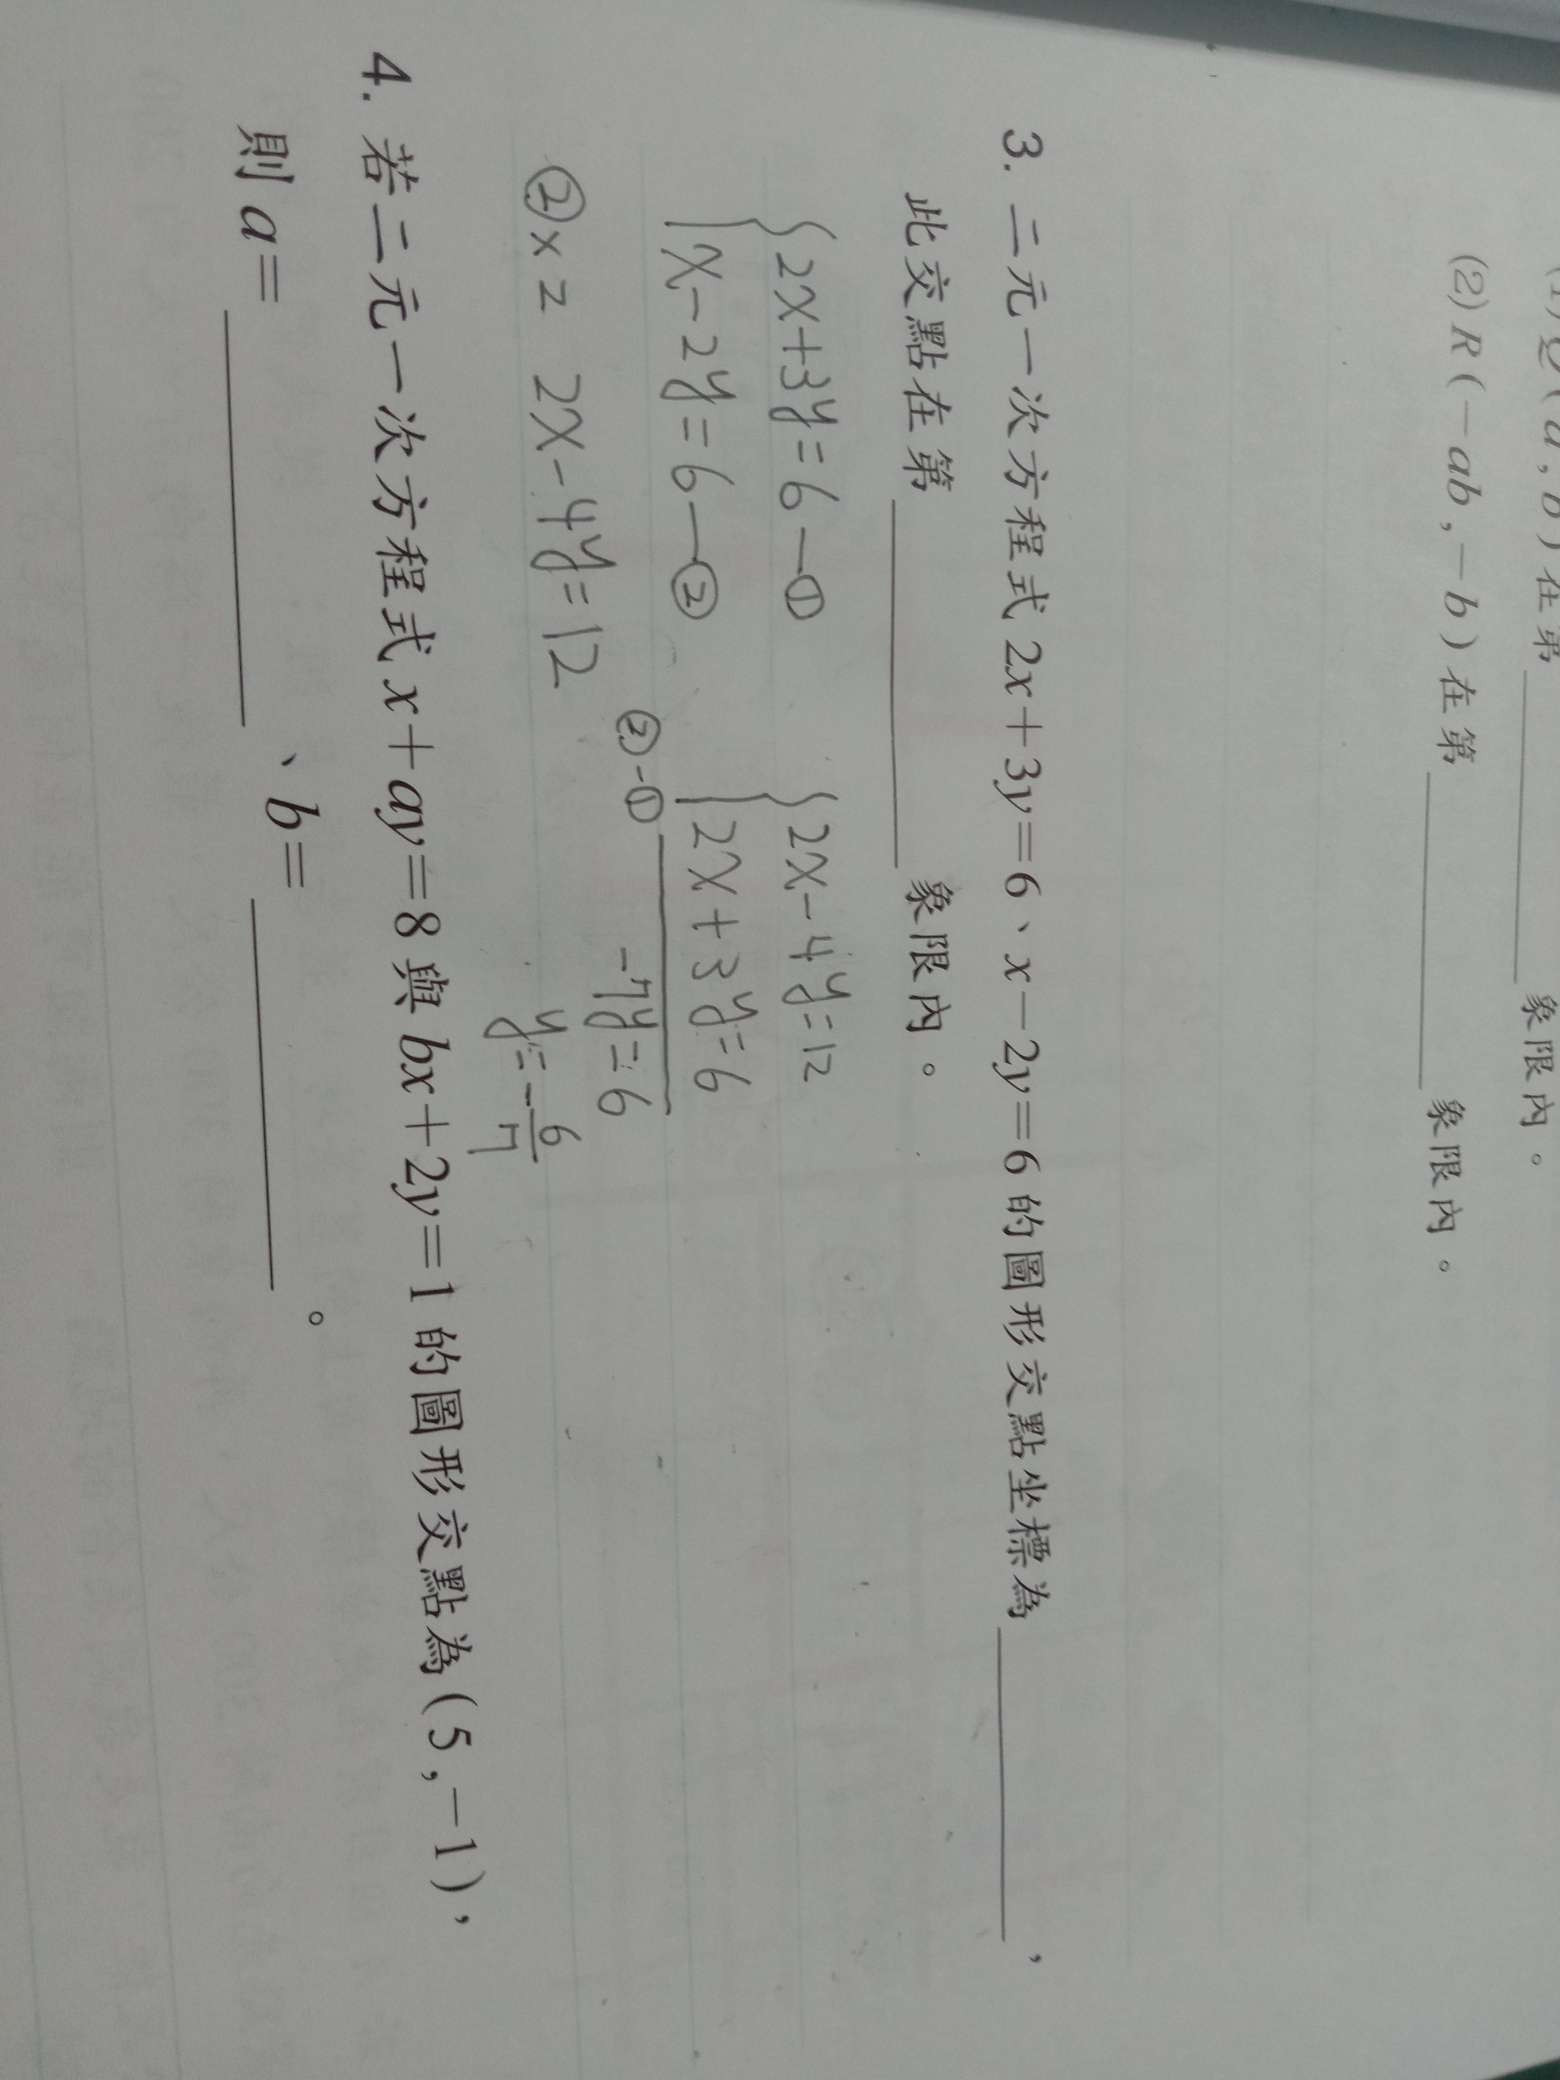 (a,b)在第 象限內。
(2) R(-ab,-b)在第 象限內。
3. 二元一次方程式2x+3y=6、x-2y=6的圖形交點坐標為 ,
此交點在第 象限內。
{2x+3y=6—①
x-2y=6—②
②×2 2x-4y=12
{2x-4y=12
2x+3y=6
②-①
-7y=6
y=-6/7
4. 若二元一次方程式x+ay=8與bx+2y=1的圖形交點為(5,-1),
則a= 、b= 。